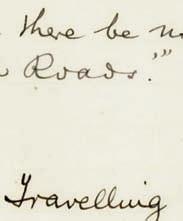 there be
Roads.'"
Travelling